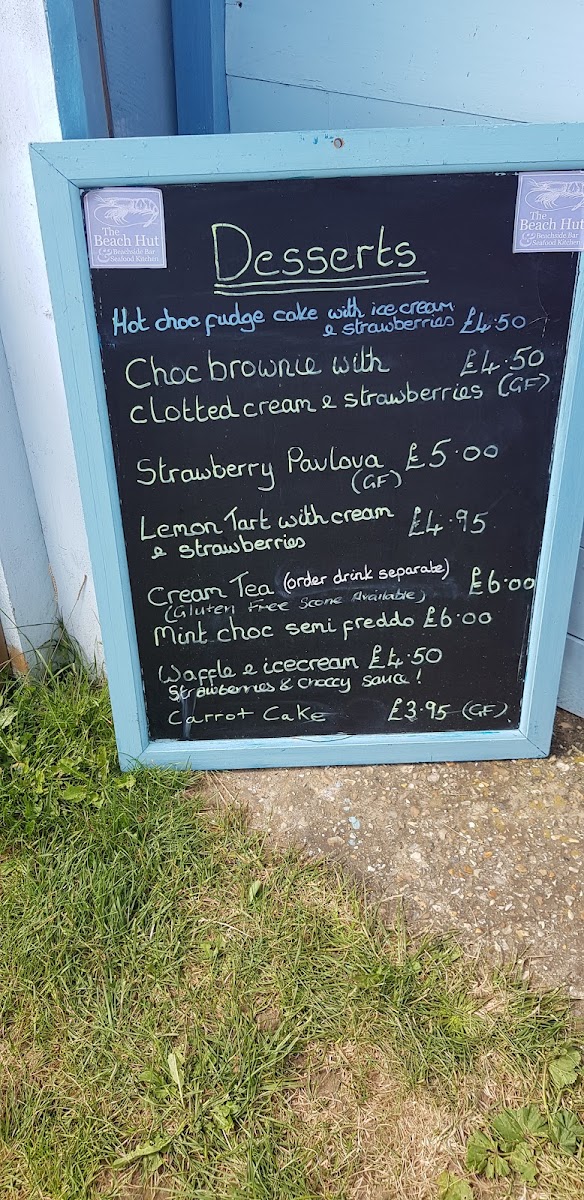 The
Beach Hut
Beachside Bar
& Seafood Kitchen
The
Beach Hut
Beachside Bar
& Seafood Kitchen
Desserts
Hot choc fudge cake with ice cream
& strawberries £4.50
Choc brownie with £4.50
clotted cream & strawberries (GF)
Strawberry Pavlova £5.00
(GF)
Lemon Tart with cream £4.95
& strawberries
Cream Tea (order drink separate) £6.00
(Gluten Free Scone Available)
Mint choc semi freddo £6.00
Waffle & icecream £4.50
Strawberries & choccy sauce!
Carrot Cake £3.95 (GF)